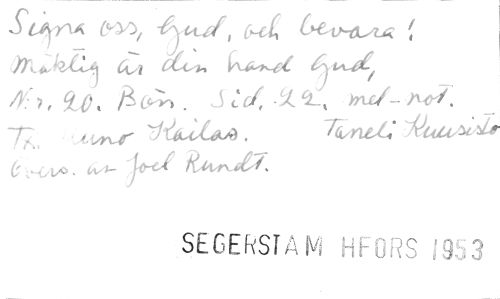 Signa oss, Gud, och bevara!
Mäktig är din hand Gud,
Nr. 20. Bön. Sid. 22. med-not.
Tx. Uuno Kailas. Taneli Kuusisto
Övers. av Joel Rundt.
SEGERSTAM HFORS 1953